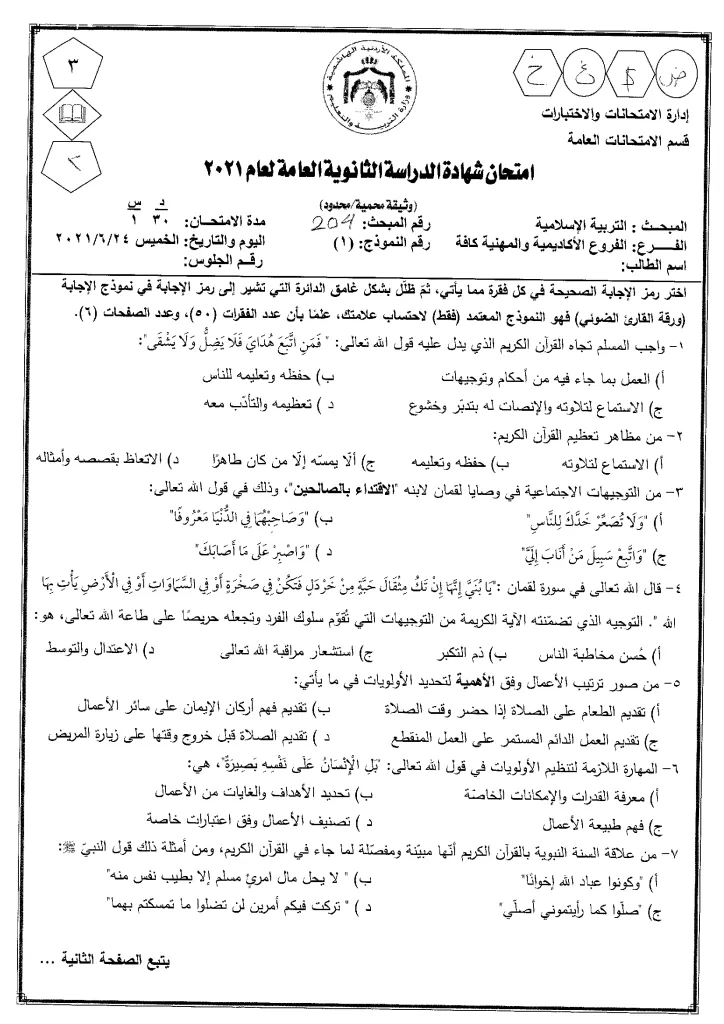 ٣
ض
ع
خ
المملكة الأردنية الهاشمية
وزارة التربية والتعليم
إدارة الامتحانات والاختبارات
قسم الامتحانات العامة
امتحان شهادة الدراسة الثانوية العامة لعام ٢٠٢١
(وثيقة محمية/محدود)
المبحث : التربية الإسلامية رقم المبحث: 204 مدة الامتحان: ٣٠ د ١ س
الفرع: الفروع الأكاديمية والمهنية كافة رقم النموذج: (١) اليوم والتاريخ: الخميس ٢٠٢١/٦/٢٤
اسم الطالب: رقم الجلوس:
اختر رمز الإجابة الصحيحة في كل فقرة مما يأتي، ثمّ ظلّل بشكل غامق الدائرة التي تشير إلى رمز الإجابة في نموذج الإجابة
(ورقة القارئ الضوئي) فهو النموذج المعتمد (فقط) لاحتساب علامتك، علمًا بأن عدد الفقرات (٥٠)، وعدد الصفحات (٦).
١- واجب المسلم تجاه القرآن الكريم الذي يدل عليه قول الله تعالى: " فَمَنِ اتَّبَعَ هُدَايَ فَلَا يَضِلُّ وَلَا يَشْقَى":
أ) العمل بما جاء فيه من أحكام وتوجيهات ب) حفظه وتعليمه للناس
ج) الاستماع لتلاوته والإنصات له بتدبّر وخشوع د ) تعظيمه والتأدّب معه
٢- من مظاهر تعظيم القرآن الكريم:
أ) الاستماع لتلاوته ب) حفظه وتعليمه ج) ألّا يمسّه إلّا من كان طاهرًا د) الاتعاظ بقصصه وأمثاله
٣- من التوجيهات الاجتماعية في وصايا لقمان لابنه "الاقتداء بالصالحين"، وذلك في قول الله تعالى:
أ) "وَلَا تُصَعِّرْ خَدَّكَ لِلنَّاسِ" ب) "وَصَاحِبْهُمَا فِي الدُّنْيَا مَعْرُوفًا"
ج) "وَاتَّبِعْ سَبِيلَ مَنْ أَنَابَ إِلَيَّ" د ) "وَاصْبِرْ عَلَى مَا أَصَابَكَ"
٤- قال الله تعالى في سورة لقمان :"يَا بُنَيَّ إِنَّهَا إِنْ تَكُ مِثْقَالَ حَبَّةٍ مِنْ خَرْدَلٍ فَتَكُنْ فِي صَخْرَةٍ أَوْ فِي السَّمَاوَاتِ أَوْ فِي الْأَرْضِ يَأْتِ بِهَا
الله ". التوجيه الذي تضمّنته الآية الكريمة من التوجيهات التي تُقوّم سلوك الفرد وتجعله حريصًا على طاعة الله تعالى، هو:
أ) حُسن مخاطبة الناس ب) ذم التكبر ج) استشعار مراقبة الله تعالى د) الاعتدال والتوسط
٥- من صور ترتيب الأعمال وفق الأهمية لتحديد الأولويات في ما يأتي:
أ) تقديم الطعام على الصلاة إذا حضر وقت الصلاة ب) تقديم فهم أركان الإيمان على سائر الأعمال
ج) تقديم العمل الدائم المستمر على العمل المنقطع د ) تقديم الصلاة قبل خروج وقتها على زيارة المريض
٦- المهارة اللازمة لتنظيم الأولويات في قول الله تعالى: "بَلِ الْإِنْسَانُ عَلَى نَفْسِهِ بَصِيرَةٌ"، هي:
أ) معرفة القدرات والإمكانات الخاصّة ب) تحديد الأهداف والغايات من الأعمال
ج) فهم طبيعة الأعمال د ) تصنيف الأعمال وفق اعتبارات خاصة
٧- من علاقة السنة النبوية بالقرآن الكريم أنّها مبيّنة ومفصّلة لما جاء في القرآن الكريم، ومن أمثلة ذلك قول النبيّ ﷺ:
أ) "وكونوا عباد الله إخوانًا" ب) " لا يحل مال امرئ مسلم إلا بطيب نفس منه"
ج) "صلّوا كما رأيتموني أصلّي" د ) " تركت فيكم أمرين لن تضلوا ما تمسكتم بهما"
يتبع الصفحة الثانية ...